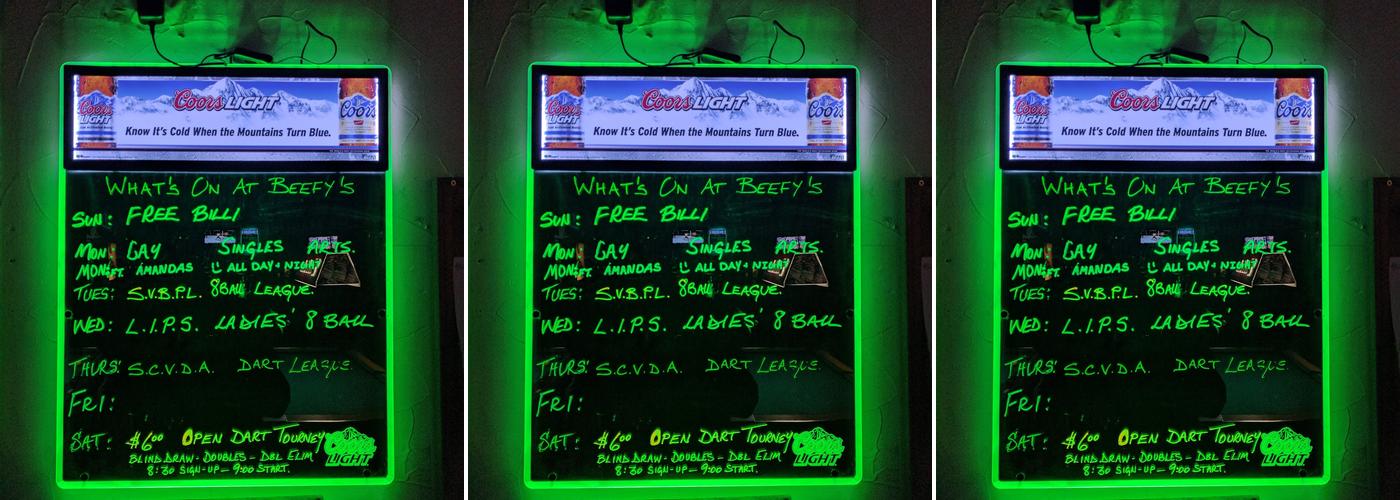 Coors LIGHT
Know It's Cold When the Mountains Turn Blue.
Coors LIGHT
Coors
WHAT'S ON AT BEEFY'S
SUN: FREE BILLI
MON GAY SINGLES ARTS.
MON: FT. AMANDAS ALL DAY + NIGHT
TUES: S.V.B.P.L. 8 BALL LEAGUE.
WED: L.I.P.S. LADIES' 8 BALL
THURS: S.C.V.D.A. DART LEAGUE.
FRI:
SAT: $6⁰⁰ OPEN DART TOURNEY
BLIND DRAW - DOUBLES - DBL ELIM
8:30 SIGN-UP - 9:00 START.
Coors LIGHT
Coors LIGHT
Know It's Cold When the Mountains Turn Blue.
Coors LIGHT
Coors
WHAT'S ON AT BEEFY'S
SUN: FREE BILLI
MON GAY SINGLES ARTS.
MON: FT. AMANDAS ALL DAY + NIGHT
TUES: S.V.B.P.L. 8 BALL LEAGUE.
WED: L.I.P.S. LADIES' 8 BALL
THURS: S.C.V.D.A. DART LEAGUE.
FRI:
SAT: $6⁰⁰ OPEN DART TOURNEY
BLIND DRAW - DOUBLES - DBL ELIM
8:30 SIGN-UP - 9:00 START.
Coors LIGHT
Coors LIGHT
Know It's Cold When the Mountains Turn Blue.
Coors LIGHT
Coors
WHAT'S ON AT BEEFY'S
SUN: FREE BILLI
MON GAY SINGLES ARTS.
MON: FT. AMANDAS ALL DAY + NIGHT
TUES: S.V.B.P.L. 8 BALL LEAGUE.
WED: L.I.P.S. LADIES' 8 BALL
THURS: S.C.V.D.A. DART LEAGUE.
FRI:
SAT: $6⁰⁰ OPEN DART TOURNEY
BLIND DRAW - DOUBLES - DBL ELIM
8:30 SIGN-UP - 9:00 START.
Coors LIGHT